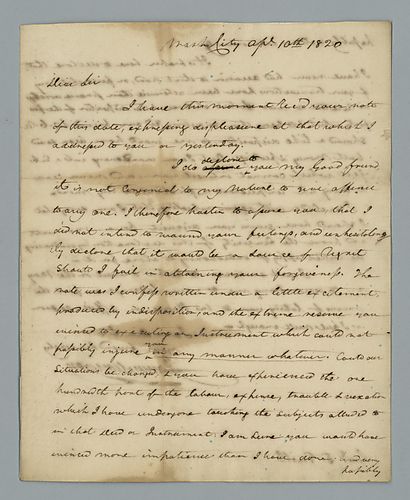 Wash City Apl. 10th 1820
Dear Sir
I have this moment Recd your note
of this date, expressing displeasure at that which I
addressed to you on yesterday.
I do declare to you my Good friend
it is not Convenial to my Natural to give offence
to any one. I therefore hasten to assure you that I
did not intend to wound your feelings, and unhesitating
ly declare that it would be a source of Regret
should I fail in obtaining your forgiveness. The
note was I confess written under a little excitement,
produced by indisposition, and the extreme reserve you
evinced to executing an Instrument which could not
possibly injure you in any manner whatever. Could our
Situations be changed, & you have experienced the one
hundredth part of the labour, expense, trouble & vexation
which I have undergone touching the subjects alluded to
in that Deed or Instrument, I am sure you would have
evinced more impatience than I have done, and very
possibly